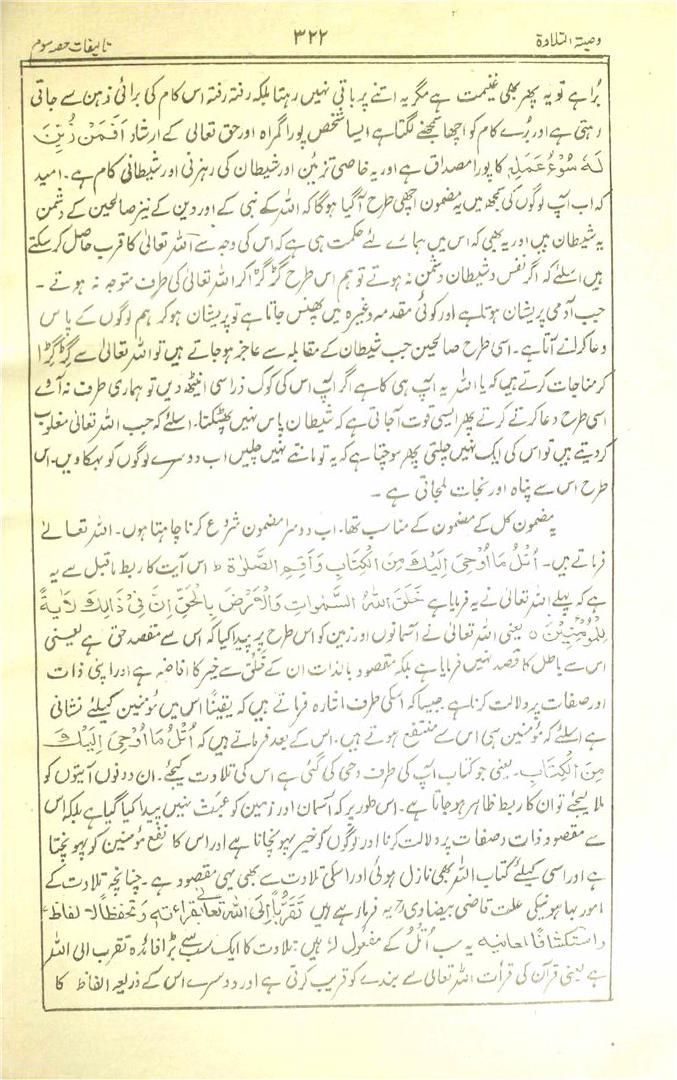 وصیۃ التلاوۃ ۳۲۲ تالیفات حصہ سوم
بُرا ہے تو یہ پھر بھی غنیمت ہے مگر یہ اتنے پر باقی نہیں رہتا بلکہ رفتہ رفتہ اس کام کی برائی ذہن سے جاتی
رہتی ہے اور بُرے کام کو اچھا سمجھنے لگتا ہے ایسا شخص پورا گمراہ اور حق تعالی کے ارشاد اَفَمَنْ زُیِّنَ
لَہٗ سُوْءُ عَمَلِہٖ کا پورا مصداق ہے اور یہ خاصی تزیین اور شیطان کی رہزنی اور شیطانی کام ہے۔ امید
کہ اب آپ لوگوں کی سمجھ میں یہ مضمون اچھی طرح آ گیا ہوگا کہ اللہ کے نبی کے اور دین کے نیز صالحین کے دشمن
یہ شیطان ہیں اور یہ بھی کہ اس میں ہمارے لئے حکمت ہی ہے کہ اس کی وجہ سے اللہ تعالیٰ کا قرب حاصل کرسکتے
ہیں اسلئے کہ اگر نفس و شیطان دشمن نہ ہوتے تو ہم اس طرح گڑگڑا کر اللہ تعالیٰ کی طرف متوجہ نہ ہوتے ۔
جب آدمی پریشان ہوتا ہے اور کوئی مقدمہ وغیرہ میں پھنس جاتا ہے تو پریشان ہوکر ہم لوگوں کے پاس
دعا کرانے آتا ہے۔ اسی طرح صالحین جب شیطان کے مقابلہ سے عاجز ہوجاتے ہیں تو اللہ تعالیٰ سے گِڑگِڑا
کر مناجات کرتے ہیں کہ یا اللہ یہ آپ ہی کا ہے اگر آپ اس کی کوک ذرا سی اینٹھ دیں تو ہماری طرف نہ آوے
اسی طرح دعا کرتے کرتے پھر ایسی قوت آجاتی ہے کہ شیطان پاس نہیں پھٹکتا۔ اسلئے کہ جب اللہ تعالیٰ مغلوب
کردیتے ہیں تو اس کی ایک نہیں چلتی پھر سوچتا ہے کہ یہ تو مانتے نہیں چلیں اب دوسرے لوگوں کو بہکاویں۔ اس
طرح اس سے پناہ اور نجات ملجاتی ہے ۔
یہ مضمون کل کے مضمون کے مناسب تھا۔ اب دوسرا مضمون شروع کرنا چاہتا ہوں۔ اللہ تعالےٰ
فرماتے ہیں۔ اُتْلُ مَا اُوْحِیَ اِلَیْكَ مِنَ الْکِتَابِ وَاَقِمِ الصَّلٰوۃَ ؕ اس آیت کا ربط ماقبل سے یہ
ہے کہ پہلے اللہ تعالیٰ نے یہ فرمایا ہے خَلَقَ اللہُ السَّمٰوَاتِ وَالْاَرْضَ بِالْحَقِّ اِنَّ فِیْ ذَالِكَ لَاٰیَۃً
لِّلْمُؤْمِنِیْنَ ہ یعنی اللہ تعالیٰ نے آسمانوں اور زمین کو اس طرح پر پیدا کیا کہ اس سے مقصد حق ہے یعنی
اس سے باطل کا قصد نہیں فرمایا ہے بلکہ مقصود بالذات ان کے خلق سے خیر کا افاضہ ہے اور اپنی ذات
اور صفات پر دلالت کرنا ہے جیسا کہ اسکی طرف اشارہ فرماتے ہیں کہ یقیناً اس میں مؤمنین کیلئے نشانی
ہے اسلئے کہ مؤمنین ہی اس سے منتفع ہوتے ہیں۔ اس کے بعد فرماتے ہیں کہ اُتْلُ مَا اُوْحِیَ اِلَیْكَ
مِنَ الْکِتَابِ۔ یعنی جو کتاب آپ کی طرف وحی کی گئی ہے اس کی تلاوت کیجئے۔ ان دونوں آیتوں کو
ملا لیجئے تو ان کا ربط ظاہر ہوجاتا ہے۔ اس طور پر کہ آسمان اور زمین کو عبث نہیں پیدا کیا گیا ہے بلکہ اس
سے مقصود ذات و صفات پر دلالت کرنا اور لوگوں کو خیر پہونچانا ہے اور اس کا نفع مؤمنین کو پہونچتا
ہے اور اسی کیلئے کتاب اللہ بھی نازل ہوئی اور اسکی تلاوت سے بھی یہی مقصود ہے۔ چنانچہ تلاوت کے
امور بہا ہونیکی علت قاضی بیضاوی رح یہ فرما رہے ہیں تَقَرُّبًا اِلَی اللہِ تعالیٰ بقراءتہ وتحفظًا لالفاظہ
واستکشافًا لمعانیہ یہ سب اُتْلُ کے مفعول لہٗ ہیں: تلاوت کا ایک سب سے بڑا فائدہ تقرب الی اللہ
ہے یعنی قرآن کی قرأت اللہ تعالیٰ سے بندے کو قریب کرتی ہے اور دوسرے اس کے ذریعہ الفاظ کا